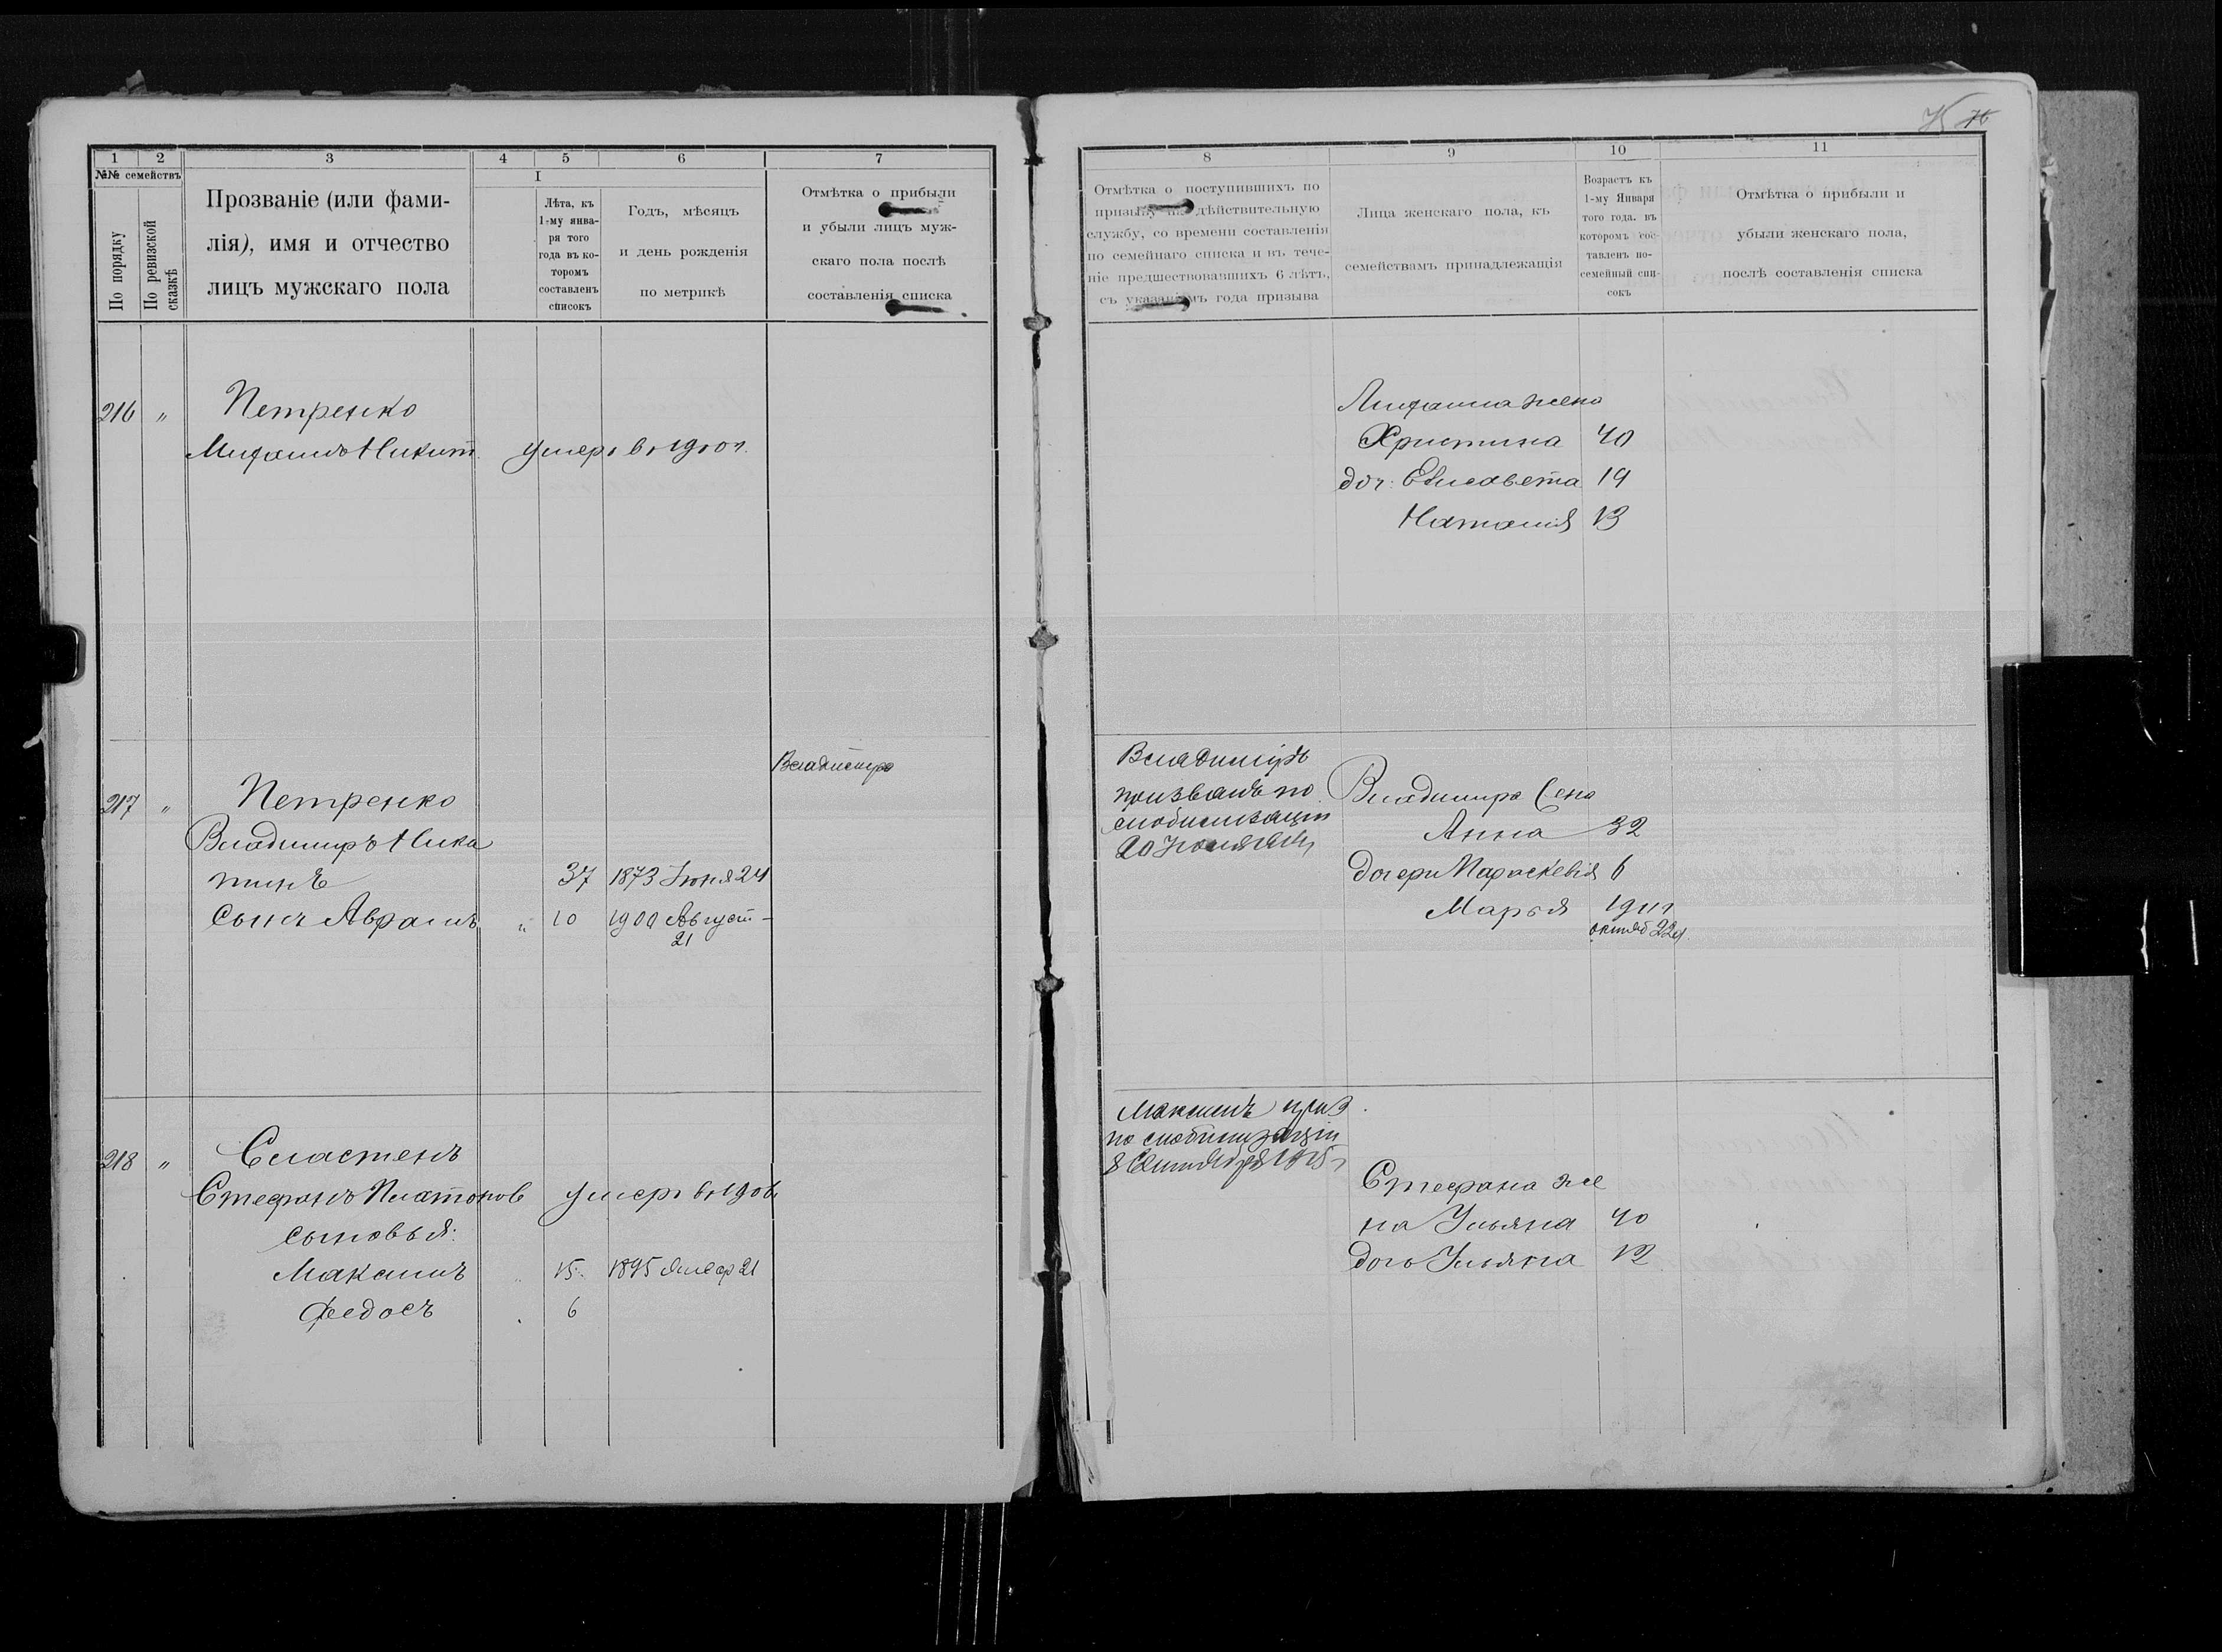 1 2 3 4 5 6 7
№№ семействъ
По порядку
По ревизской сказкѣ
Прозваніе (или фами-
лія), имя и отчество
лицъ мужскаго пола
I
Лѣта, къ
1-му янва-
ря того
года въ ко-
торомъ
составленъ
списокъ
Годъ, мѣсяцъ
и день рожденія
по метрикѣ
Отмѣтка о прибыли
и убыли лицъ муж-
скаго пола послѣ
составленія списка
216 „ Петренко
Никит. умеръ въ 1900 г.
217 „ Петренко
Владимиръ Ника
37 1873 Іюня 24
сынъ Аврамъ „ 10 1900 Август-
21
218 „ Сластенъ
Стефанъ Платонов умеръ въ
сыновья:
Максимъ „ 15. 1895 Январ 21
Федосъ 6
8 9 10 11
Отмѣтка о поступившихъ по
призыву на дѣйствительную
службу, со времени составленія
по семейнаго списка и въ тече-
ніе предшествовавшихъ 6 лѣтъ,
съ указаніемъ года призыва
Лица женскаго пола, къ
семействамъ принадлежащія
Возрастъ къ
1-му Января
того года, въ
которомъ сос-
тавленъ по-
семейный спи-
сокъ
Отмѣтка о прибыли и
убыли женскаго пола,
послѣ составленія списка
жена
Христина 40
доч: Елисавета 19
Наталія 13
Владиміръ
призванъ по
мобилизаціи
20
Владимира
Анна 32
дочери Параскевія 6
Марья 1911
октяб 22
Максимъ приз
по мобилизаціи
8 Сентября 1915 г
Стефана же
на Ульяна 40
дочь Ульяна 12